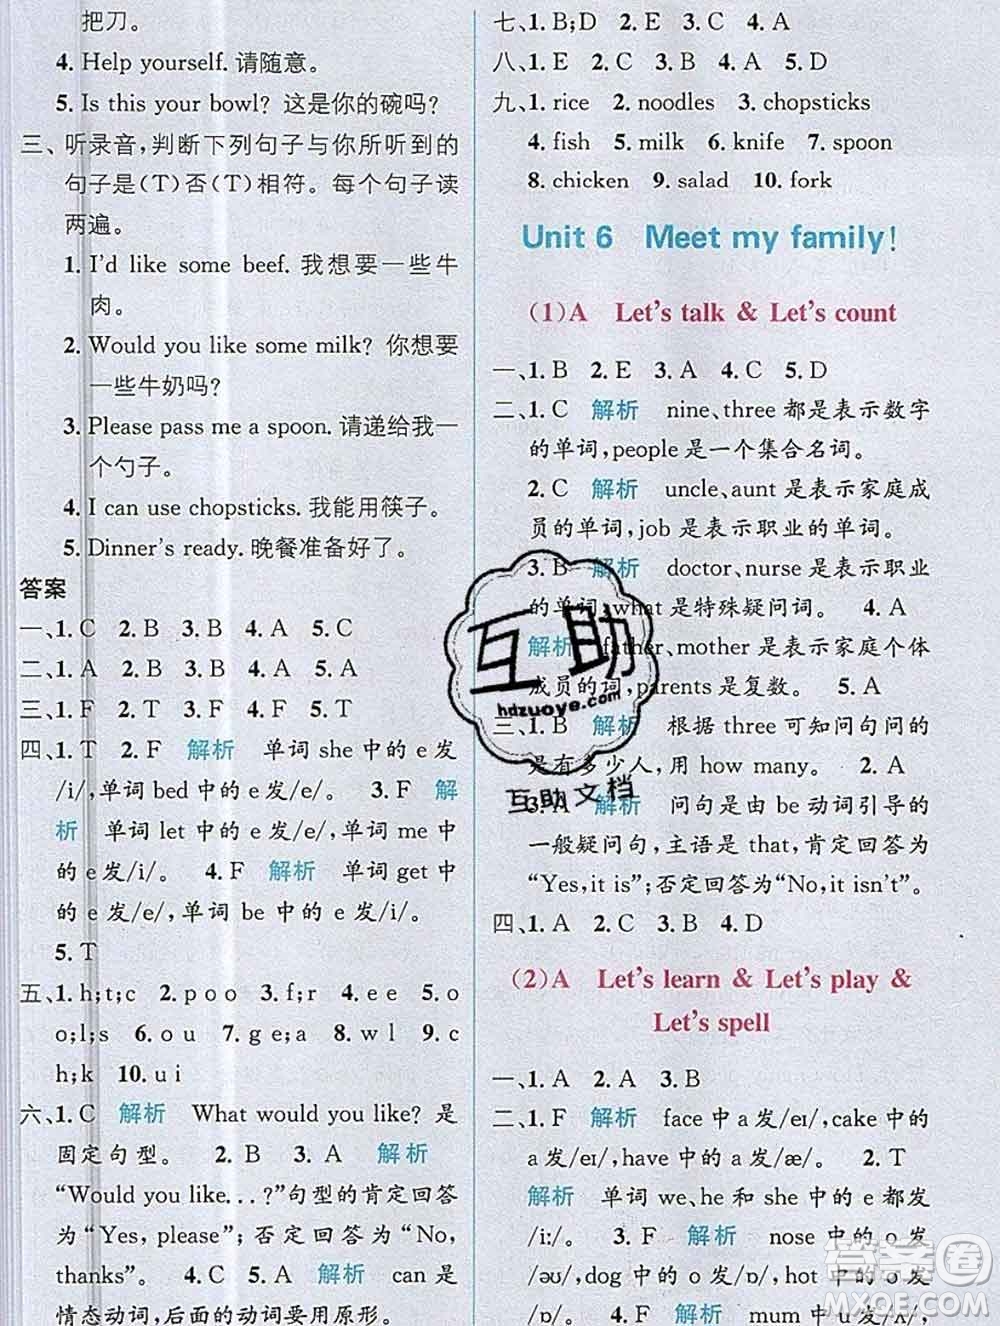 把刀。
4. Help yourself. 请随意。
5. Is this your bowl? 这是你的碗吗?
三、听录音,判断下列句子与你所听到的
句子是(T)否(T)相符。每个句子读
两遍。
1. I'd like some beef. 我想要一些牛
肉。
2. Would you like some milk? 你想要
一些牛奶吗?
3. Please pass me a spoon. 请递给我一
个勺子。
4. I can use chopsticks. 我能用筷子。
5. Dinner's ready. 晚餐准备好了。
答案
一、1. C 2. B 3. B 4. A 5. C
二、1. A 2. B 3. B 4. A 5. A
三、1. F 2. T 3. F 4. T 5. F
四、1. T 2. F 解析 单词 she 中的 e 发
/i/,单词 bed 中的 e 发/e/。 3. F 解
析 单词 let 中的 e 发/e/,单词 me 中
的 e 发/i/。 4. F 解析 单词 get 中
的 e 发/e/,单词 be 中的 e 发/i/。
5. T
五、1. h;t;c 2. p o o 3. f;r 4. e e 5. o
o;l;s 6. o u 7. g e;a 8. w l 9. c
h;k 10. u i
六、1. C 解析 What would you like? 是
固定句型。 2. B 3. A 解析
“Would you like...?”句型的肯定回答
为“Yes, please”;否定回答为“No,
thanks”。 4. C 5. A 解析 can 是
情态动词,后面的动词要用原形。
七、1. D;F 2. E 3. C 4. A 5. B
八、1. E 2. C 3. B 4. A 5. D
九、1. rice 2. noodles 3. chopsticks
4. fish 5. milk 6. knife 7. spoon
8. chicken 9. salad 10. fork
Unit 6 Meet my family!
(1)A Let's talk & Let's count
一、1. B 2. E 3. A 4. C 5. D
二、1. C 解析 nine、three 都是表示数字
的单词,people 是一个集合名词。
2. C 解析 uncle、aunt 是表示家庭成
员的单词,job 是表示职业的单词。
3. B 解析 doctor、nurse 是表示职业
的单词,what 是特殊疑问词。 4. A
解析 father、mother 是表示家庭个体
成员的词,parents 是复数。 5. A
三、1. B 解析 根据 three 可知问句问的
是有多少人,用 how many。 2. A
3. A 解析 问句是由 be 动词引导的
一般疑问句,主语是 that,肯定回答为
“Yes,it is”;否定回答为“No,it isn't”。
四、1. A 2. C 3. B 4. D
(2)A Let's learn & Let's play &
Let's spell
一、1. A 2. A 3. B
二、1. F 解析 face 中 a 发/eɪ/,cake 中的
a 发/eɪ/,cat 中的 a 发/æ/。 2. T
解析 单词 we、he 和 she 中的 e 都发
/i:/。 3. F 解析 nose 中的 o 发
/əʊ/,dog 中的 o 发/ɒ/,hot 中的 o 发
/ɒ/。 4. F 解析 mum 中的 u 发
互助
hdzuoye.com
互助文档
答案圈
MXQE.COM